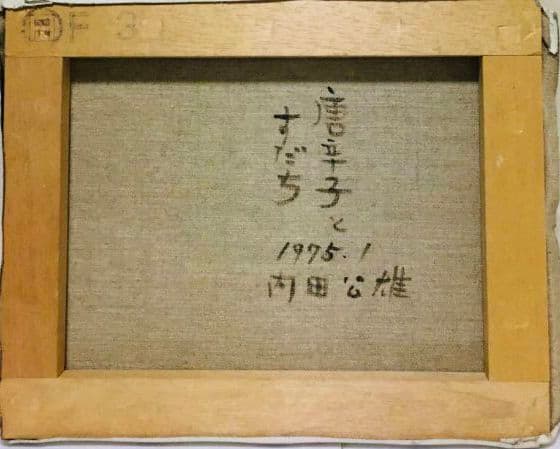 F 3
唐辛子と
すだち
1975.1
内田公雄